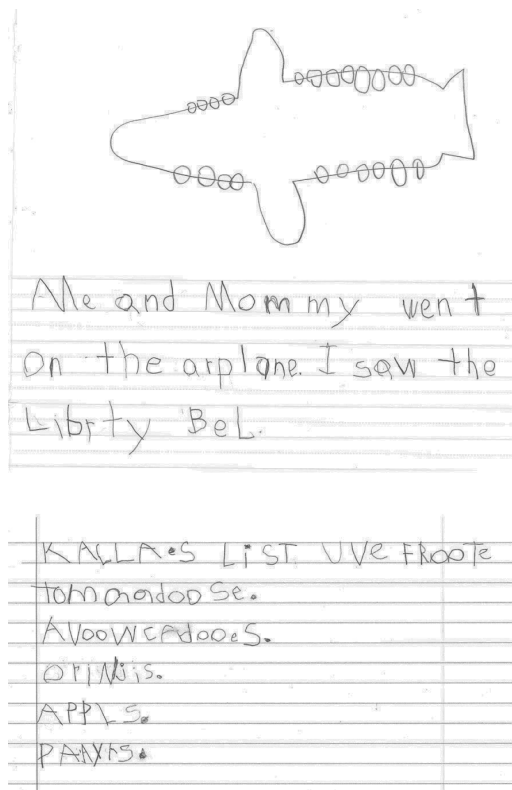 Me and Mommy went
on the arplane. I saw the
Librty BeL.
KALLA'S LiST UVe FROOTe
tomaadooSe.
AVOOWCAdOOeS.
OriNjis.
APPLS.
PAAYrS.